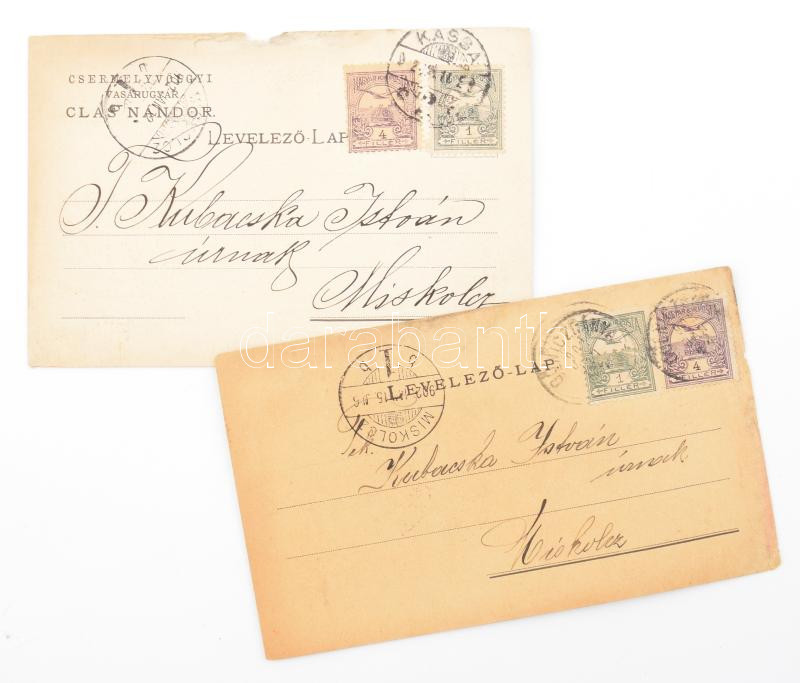 CSERMELYVÖLGYI
VASÁRUGYÁR
CLAS NÁNDOR.
KASSA
LEVELEZŐ-LAP
4
FILLÉR
1
FILLÉR
T. Kubacska István
úrnak
Miskolcz
darabanth
LEVELEZŐ-LAP
MISKOLCZ
1
FILLÉR
4
FILLÉR
Tek.
Kubacska István
úrnak
Miskolcz